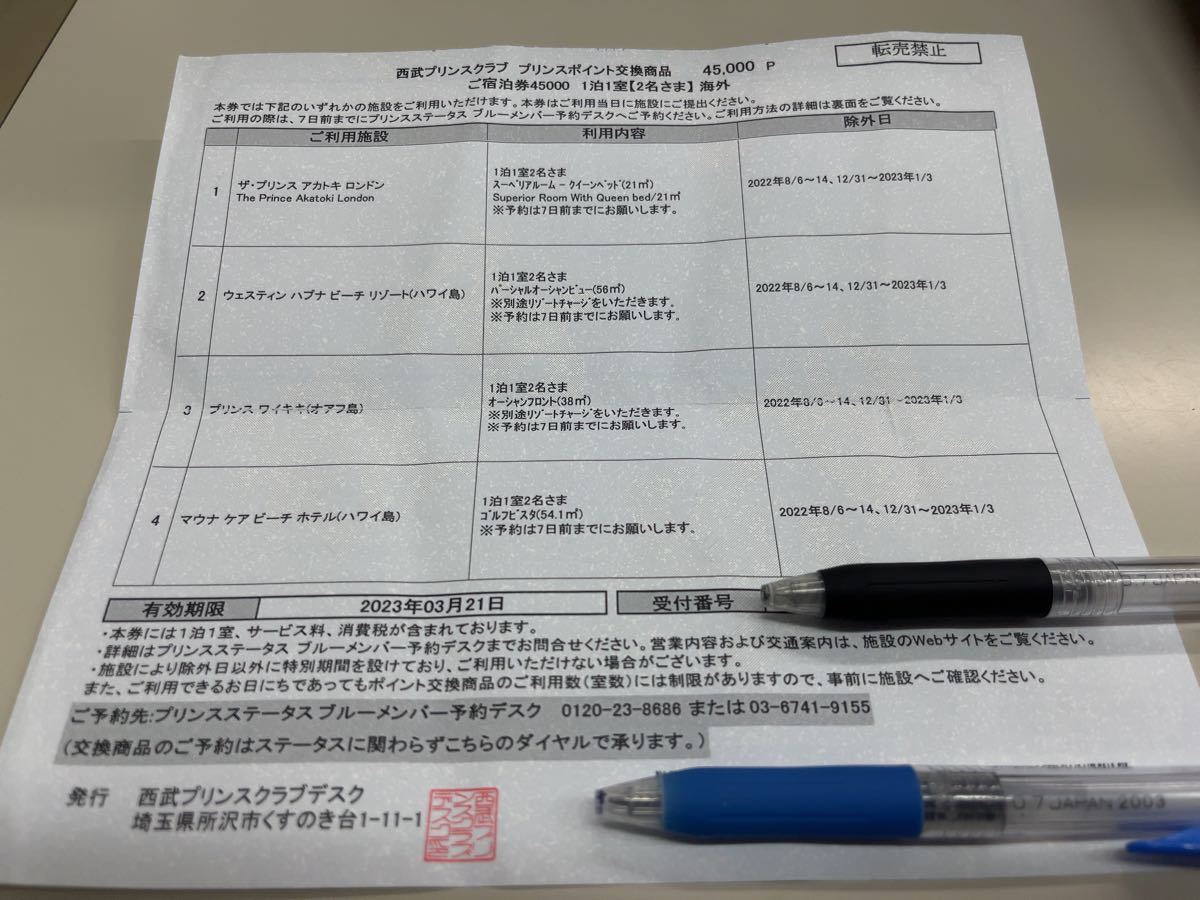 転売禁止
西武プリンスクラブ プリンスポイント交換商品 45,000 P
ご宿泊券45000 1泊1室【2名さま】 海外
本券では下記のいずれかの施設をご利用いただけます。本券はご利用当日に施設にご提出ください。
ご利用の際は、7日前までにプリンスステータス ブルーメンバー予約デスクへご予約ください。ご利用方法の詳細は裏面をご覧ください。
ご利用施設 利用内容 除外日
1
ザ・プリンス アカトキ ロンドン
The Prince Akatoki London
1泊1室2名さま
スーペリアルーム - クイーンベッド(21㎡)
Superior Room With Queen bed/21㎡
※予約は7日前までにお願いします。
2022年8/6～14、12/31～2023年1/3
2
ウェスティン ハプナ ビーチ リゾート(ハワイ島)
1泊1室2名さま
パーシャルオーシャンビュー(56㎡)
※別途リゾートチャージをいただきます。
※予約は7日前までにお願いします。
2022年8/6～14、12/31～2023年1/3
3
プリンス ワイキキ(オアフ島)
1泊1室2名さま
オーシャンフロント(38㎡)
※別途リゾートチャージをいただきます。
※予約は7日前までにお願いします。
2022年8/6～14、12/31～2023年1/3
4
マウナ ケア ビーチ ホテル(ハワイ島)
1泊1室2名さま
ゴルフビスタ(54.1㎡)
※予約は7日前までにお願いします。
2022年8/6～14、12/31～2023年1/3
有効期限 2023年03月21日 受付番号
・本券には1泊1室、サービス料、消費税が含まれております。
・詳細はプリンスステータス ブルーメンバー予約デスクまでお問合せください。営業内容および交通案内は、施設のWebサイトをご覧ください。
・施設により除外日以外に特別期間を設けており、ご利用いただけない場合がございます。
また、ご利用できるお日にちであってもポイント交換商品のご利用数(室数)には制限がありますので、事前に施設へご確認ください。
ご予約先:プリンスステータス ブルーメンバー予約デスク 0120-23-8686 または 03-6741-9155
(交換商品のご予約はステータスに関わらずこちらのダイヤルで承ります。)
発行 西武プリンスクラブデスク
埼玉県所沢市くすのき台1-11-1
0.7 JAPAN
0.7 JAPAN 2003